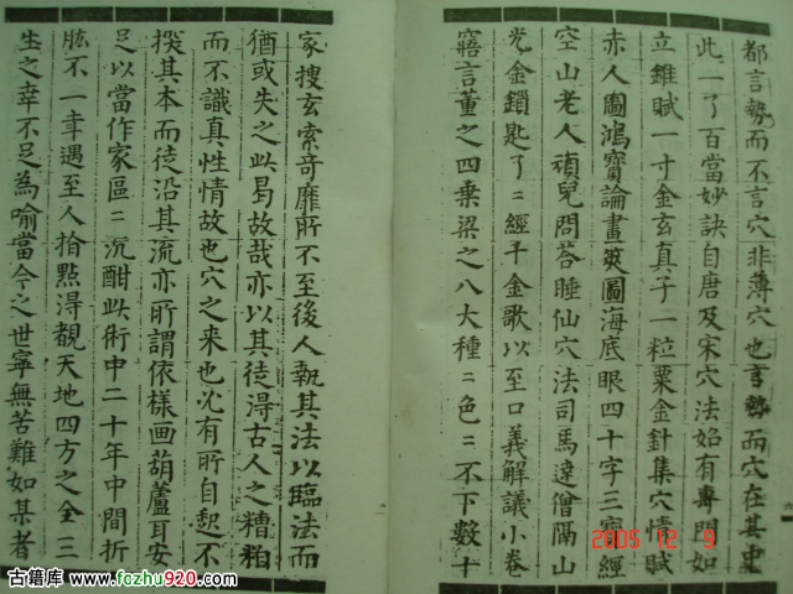 都言勢而不言穴非薄穴也言勢而穴在其中
此一了百當妙訣自唐及宋穴法始有專門如
立錐賦一寸金玄真子一粒粟金針集穴情賦
赤人圖鴻寶論畫筴圖海底眼四十字三寶經
空山老人頑兒問荅睡仙穴法司馬達僧隔山
光金鎖匙了〻經千金歌以至口義解議小卷
寤言董之四乗梁之八大種〻色〻不下數十
家搜玄索竒靡所不至後人執其法以臨法而
猶或失之此曷故哉亦以其徒淂古人之糟粕
而不識真性情故也穴之来也必有所自起不
揆其本而徒沿其流亦所謂依様画葫蘆耳安
足以當作家區〻沉酣此術中二十年中間折
肱不一幸遇至人指點淂觀天地四方之全三
生之幸不足為喻當今之世寧無苦難如某者
六
2005 12 9
古籍库 www.fozhu920.com